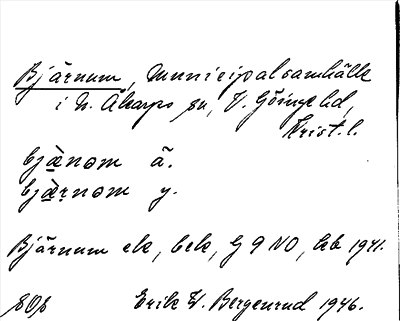 Bjärnum, municipalsamhälle
i N. Åkarps sn, V. Göinge hd,
Krist. l.
bjænom ä.
bjærnom y.
Bjärnum ek, bek, G 9 NO, leb 1941.
SOS Erik W. Bergenrud 1946.